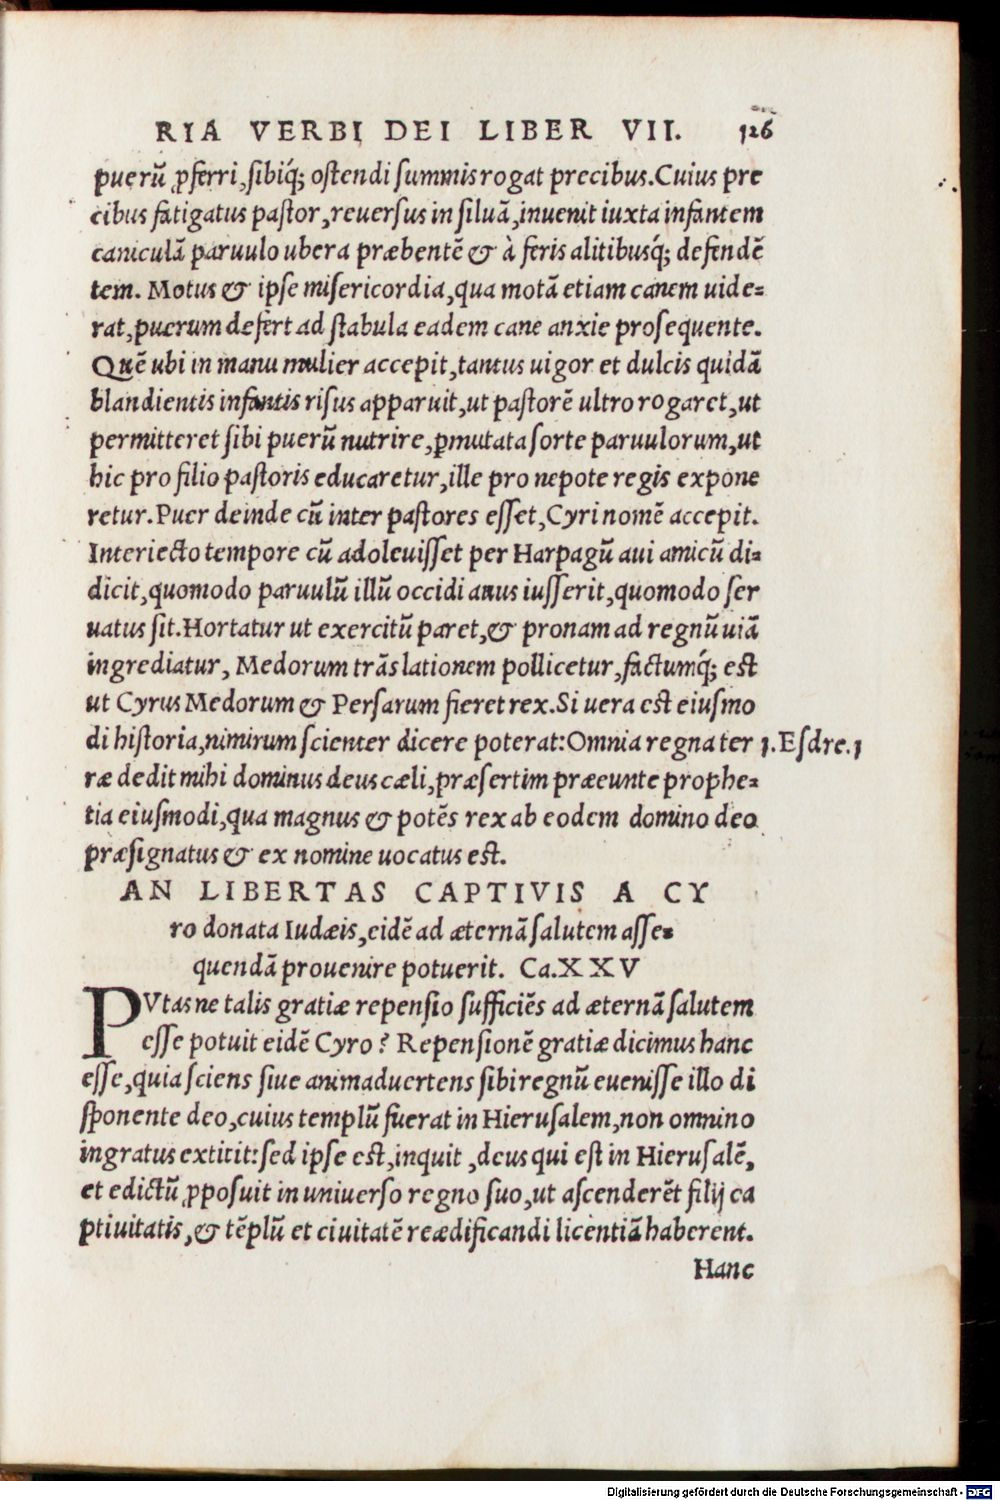 RIA VERBI DEI LIBER VII. 126
puerũ ꝓferri, sibiq́; ostendi summis rogat precibus. Cuius pre
cibus fatigatus pastor, reuersus in siluã, inuenit iuxta infantem
caniculã paruulo ubera præbentẽ & à feris alitibusq́; defendẽ
tem. Motus & ipse misericordia, qua motã etiam canem uide-
rat, puerum defert ad stabula eadem cane anxie prosequente.
Quẽ ubi in manu mulier accepit, tantus uigor et dulcis quidã
blandientis infantis risus apparuit, ut pastorẽ ultro rogaret, ut
permitteret sibi puerũ nutrire, ꝑmutata sorte paruulorum, ut
hic pro filio pastoris educaretur, ille pro nepote regis expone
retur. Puer deinde cũ inter pastores esset, Cyri nomẽ accepit.
Interiecto tempore cũ adoleuisset per Harpagũ aui amicũ di-
dicit, quomodo paruulũ illũ occidi auus iusserit, quomodo ser
uatus sit. Hortatur ut exercitũ paret, & pronam ad regnũ uiã
ingrediatur, Medorum trãslationem pollicetur, factumq́; est
ut Cyrus Medorum & Persarum fieret rex. Si uera est eiusmo
di historia, nimirum scienter dicere poterat: Omnia regna ter 1. Esdre. 1
ræ dedit mihi dominus deus cæli, præsertim præeunte prophe-
tia eiusmodi, qua magnus & potẽs rex ab eodem domino deo
præsignatus & ex nomine uocatus est.
AN LIBERTAS CAPTIVIS A CY
ro donata Iudæis, eidẽ ad æternã salutem asse-
quendã prouenire potuerit. Ca. XXV
PVtas ne talis gratiæ repensio sufficiẽs ad æternã salutem
esse potuit eidẽ Cyro? Repensionẽ gratiæ dicimus hanc
esse, quia sciens siue animaduertens sibi regnũ euenisse illo di
sponente deo, cuius templũ fuerat in Hierusalem, non omnino
ingratus extitit: sed ipse est, inquit, deus qui est in Hierusalẽ,
et edictũ ꝓposuit in uniuerso regno suo, ut ascenderẽt filij ca
ptiuitatis, & tẽplũ et ciuitatẽ reædificandi licentiã haberent.
Hanc
Digitalisierung gefördert durch die Deutsche Forschungsgemeinschaft - DFG